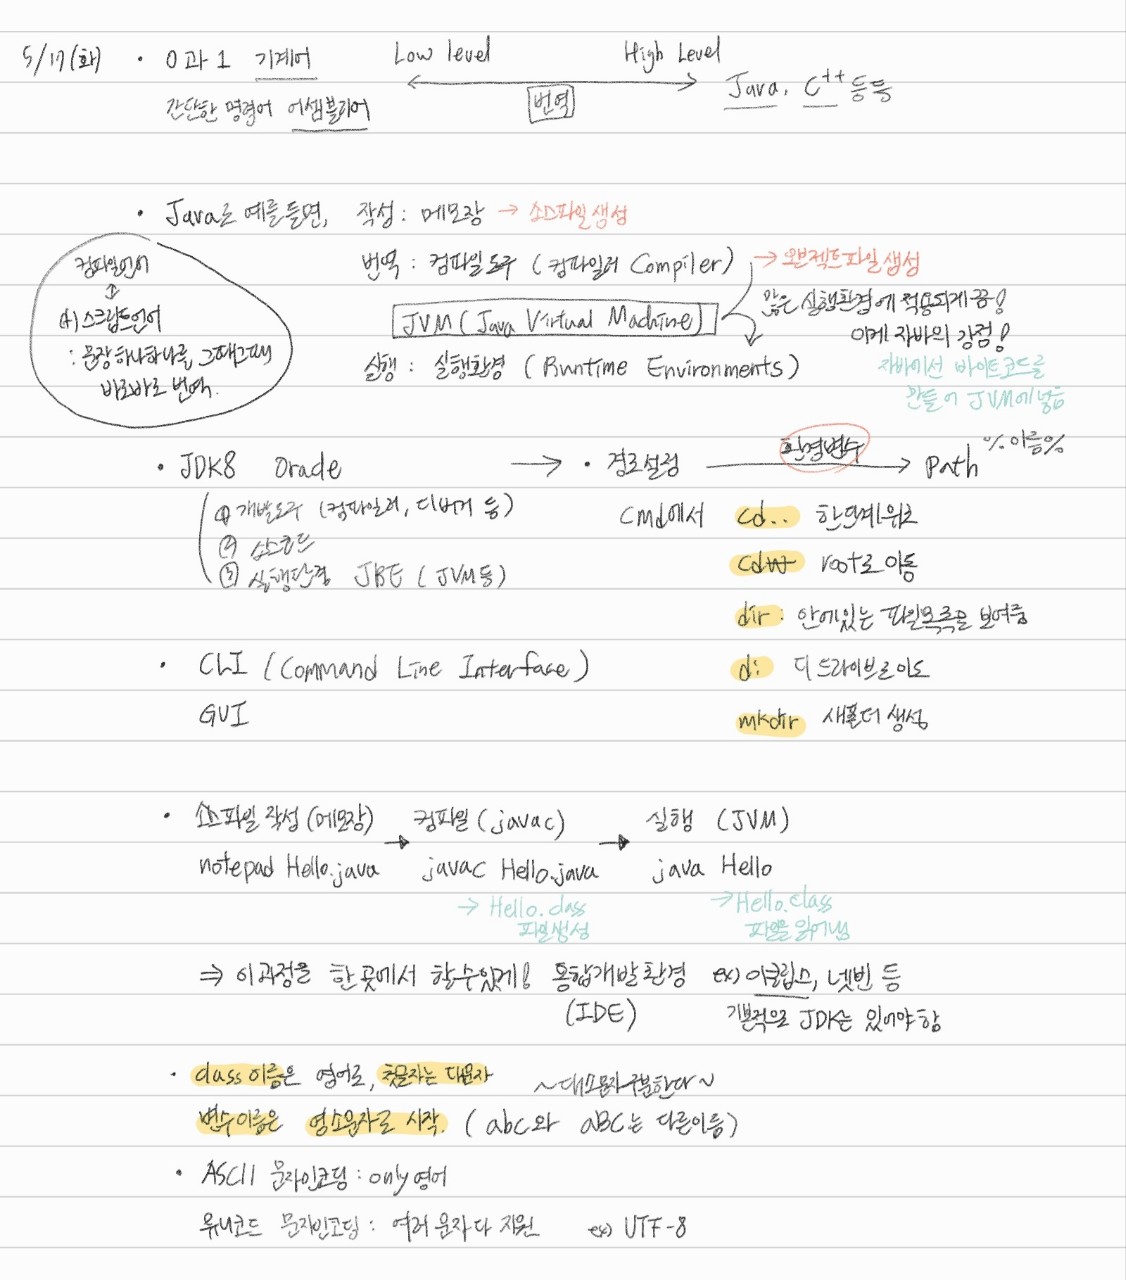 5/17(화) · 0과 1 기계어 Low level ↔ High Level
간단한 명령어 어셈블리어 번역 Java, C++ 등등
· Java로 예를들면, 작성 : 메모장 → 소스파일생성
번역 : 컴파일도구 (컴파일러 Compiler) → 오브젝트파일생성
JVM (Java Virtual Machine)
많은 실행환경에 적용되게 끔!
이게 자바의 강점!
실행 : 실행환경 (Runtime Environments)
자바에선 바이트코드를
만들어 JVM에 넣음
컴파일언어
↕
(4) 스크립트언어
: 문장하나하나를, 그때그때
바로바로 번역.
· JDK8 Oracle → · 경로설정 환경변수 → Path %이름%
① 개발도구 (컴파일러, 디버거 등)
② 소스코드
③ 실행환경 JRE (JVM등)
cmd에서 cd.. 한단계위로
cd₩ root로 이동
dir : 안에있는 파일목록을 보여줌
d: 디 드라이브로이도
mkdir 새폴더 생성
· CLI (Command Line Interface)
GUI
· 소스파일 작성 (메모장) → 컴파일 (javac) → 실행 (JVM)
notepad Hello.java javac Hello.java java Hello
→ Hello.class 파일생성
→ Hello.class 파일을 읽어냄
⇒ 이과정을 한곳에서 할수있게! 통합개발환경 ex) 이클립스, 넷빈 등
(IDE) 기본적으로 JDK는 있어야 함
· class 이름은 영어로, 첫글자는 대문자 ~대소문자구분한다~
변수이름은 영소문자로 시작. (abc와 aBC는 다른이름)
· ASCII 문자인코딩 : only영어
유니코드 문자인코딩 : 여러 문자 다 지원 ex) UTF-8